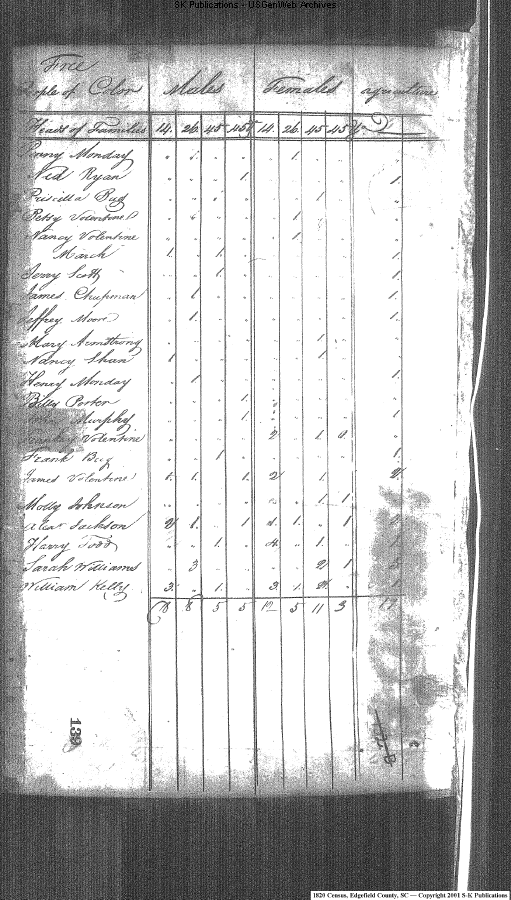 SK Publications - USGenWeb Archives
Free
People of Color Males Females agriculture
Heads of Families 14. 26 45 45 14. 26 45 45
Henry Monday 1. 1.
Ned Ryan 1. 1.
Priscilla Bug 1.
Petsy Volentine 1.
Nancy Volentine 1.
March 1. 1. 1.
Jerry Scott 1. 1.
James Chapman 1. 1.
Jeffrey Moore 1. 1.
Mary Armstrong 1.
Nancy Shan 1 1.
Henry Monday 1. 1.
Billy Porter 1.
Murphy 1. 1.
Volentine 2 1.
Frank Bug 1 1.
James Volentine 1. 1. 1. 2 1. 2
Molly Johnson 1 1.
Jackson 2 1. 1 1. 1
Harry Todd 1. 4. 1.
Sarah Williams 3 2 1
William Kelly 3. 1. 3. 1. 1
8 8 5 5 12 5 11 3 17
139
1820 Census, Edgefield County, SC — Copyright 2001 S-K Publications